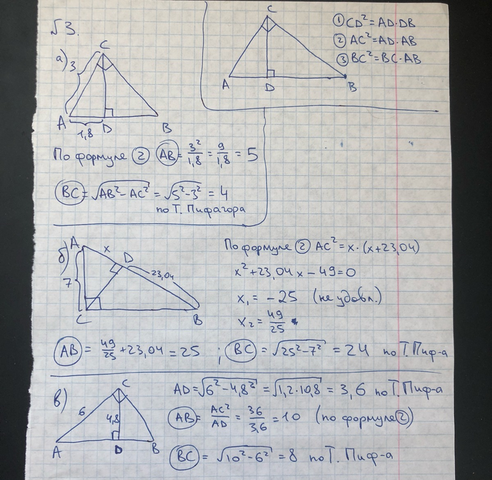 √3
C
① CD²=AD·DB
② AC²=AD·AB
③ BC²=BC·AB
A D B
а) 3
C
A D B
1,8
По формуле ② AB = 3²/1,8 = 9/1,8 = 5
BC = √AB²-AC² = √5²-3² = 4
по Т. Пифагора
б) A x D 23,04
7
C B
По формуле ② AC²=x·(x+23,04)
x²+23,04x-49=0
x₁=-25 (не удовл.)
x₂=49/25
AB = 49/25+23,04=25 ; BC = √25²-7² = 24 по Т.Пиф-а
в) C
6 4,8
A D B
AD=√6²-4,8² = √1,2·10,8 = 3,6 по Т.Пиф-а
AB = AC²/AD = 36/3,6 = 10 (по формуле ②)
BC = √10²-6² = 8 по Т. Пиф-а